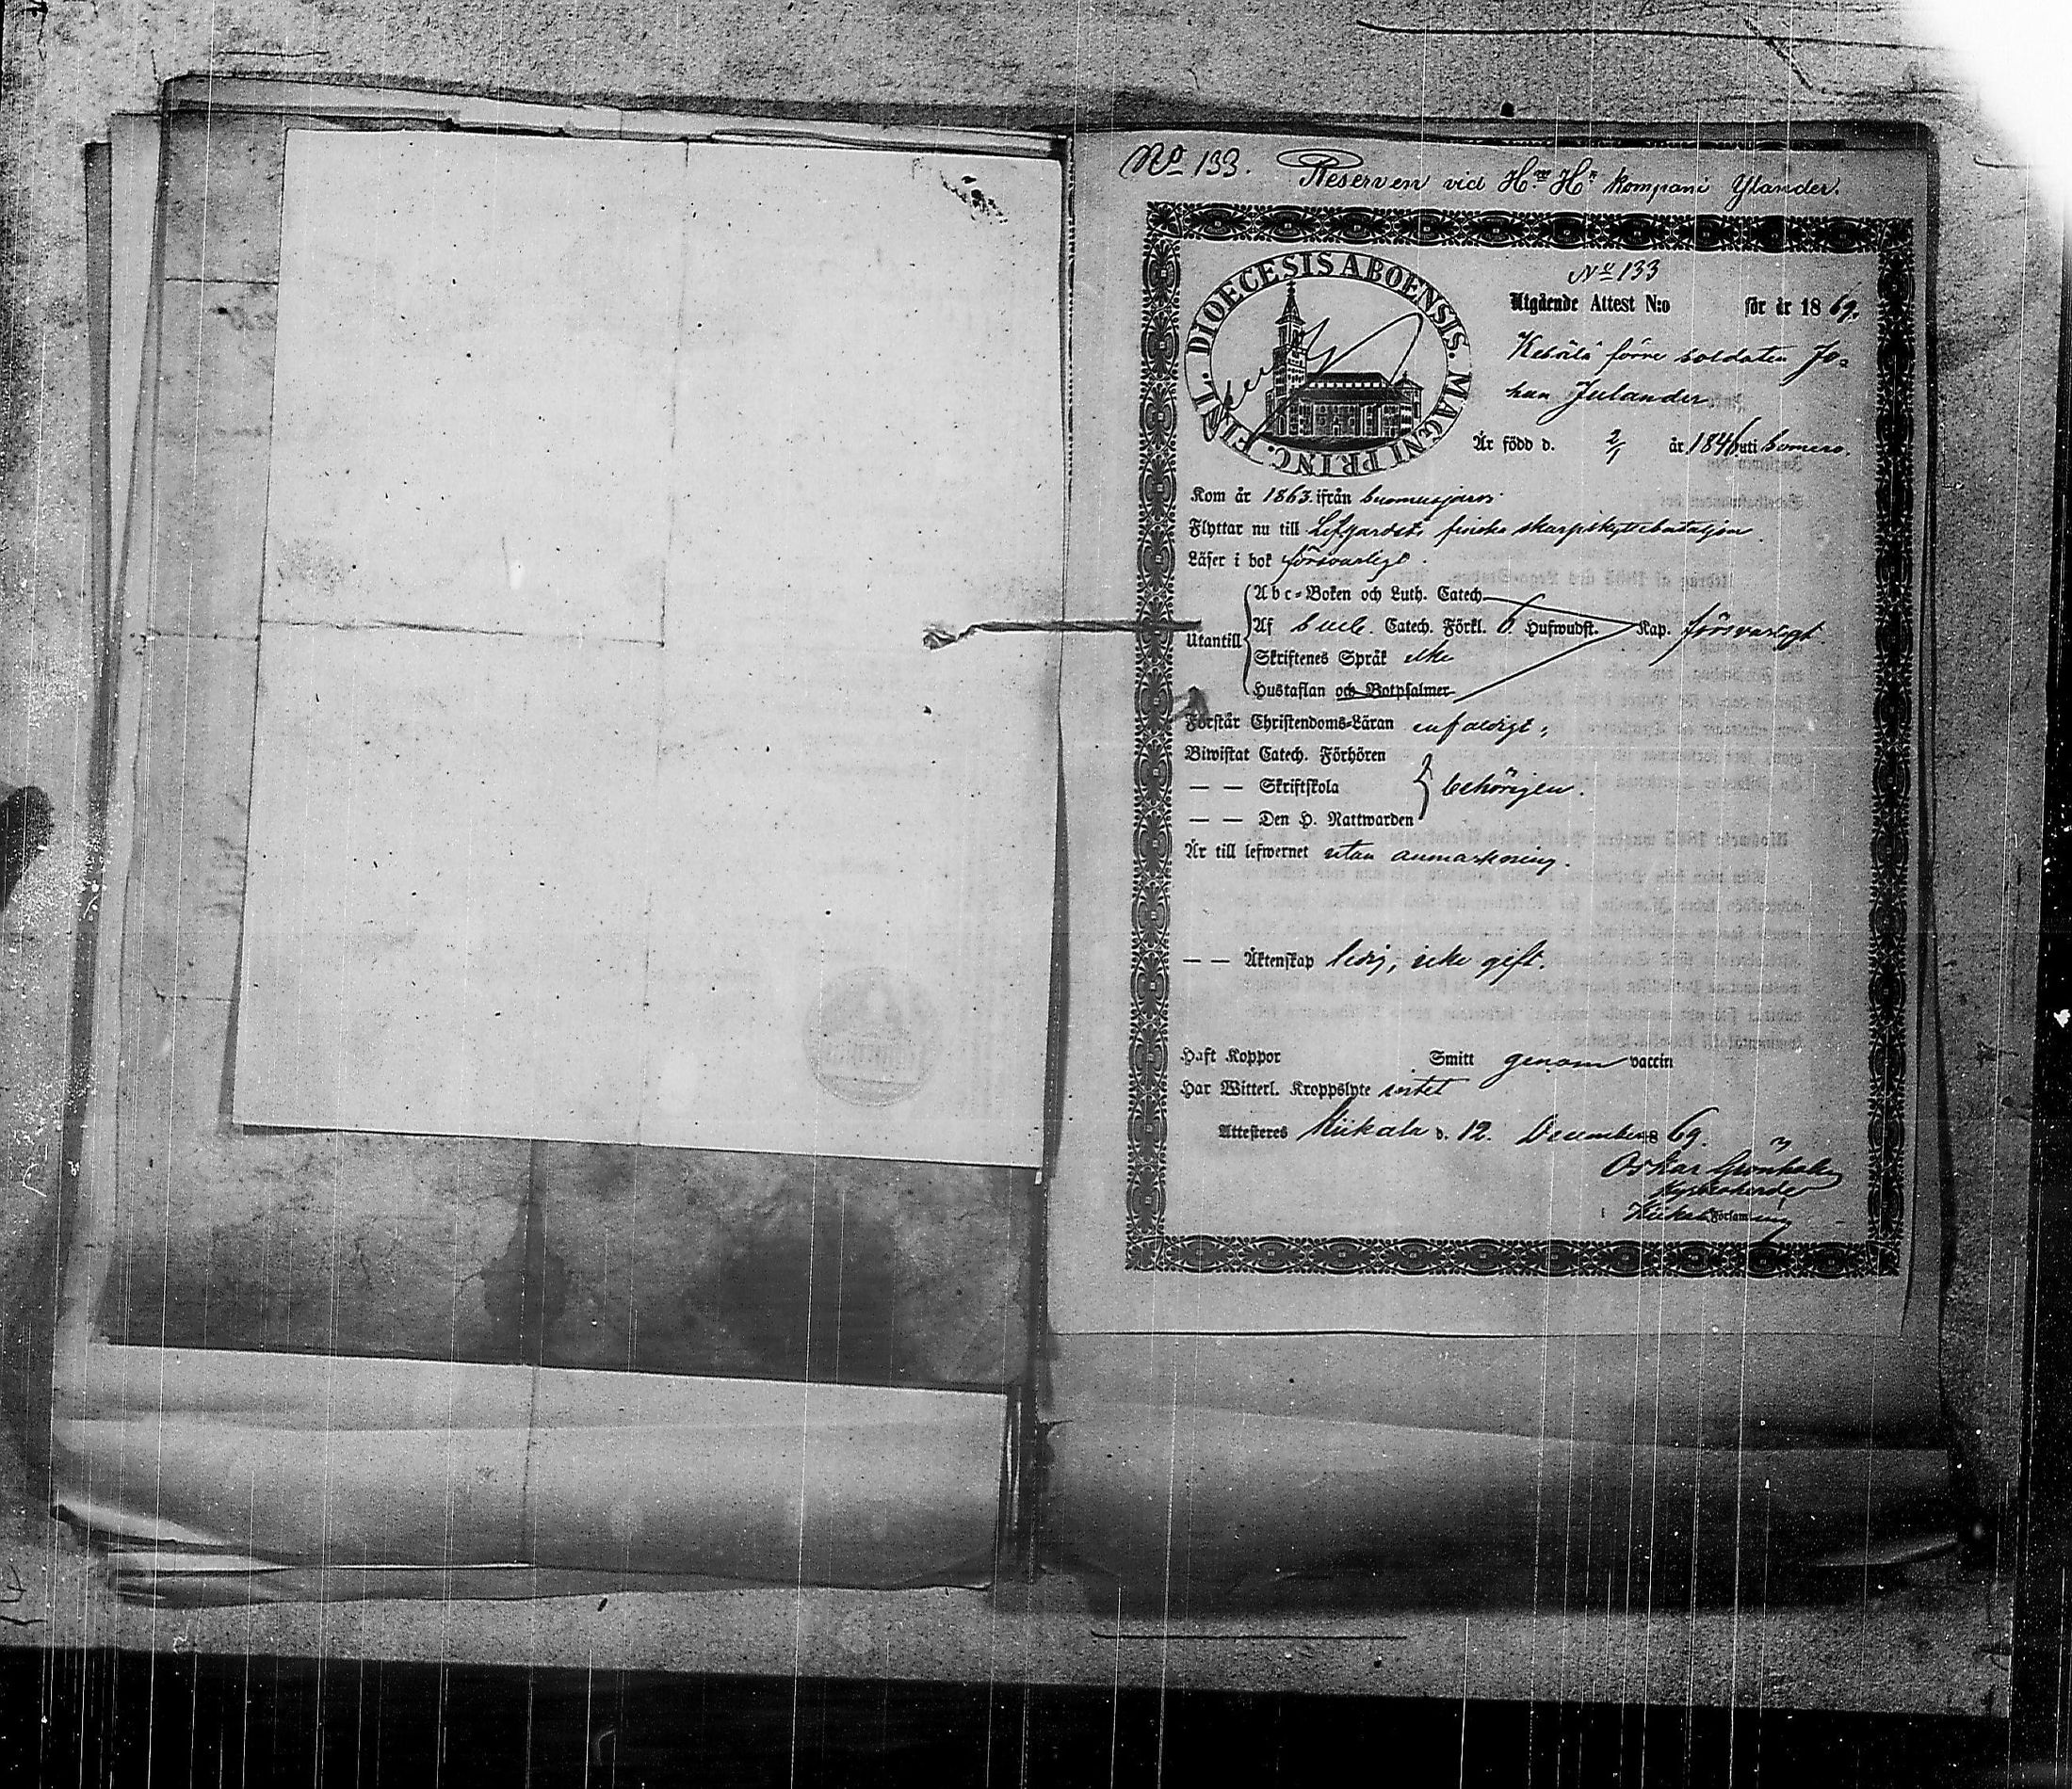 No 133. Reserven vid H:ns H:s kompani Ylander.
DIOECESIS ABOENSIS. MAGNI PRINC. FINL.
No 133
Utgående Attest N:o för år 1869.
förre soldaten Jo-
han Julander
Är född d. 2/1 år 1846 uti Somero.
Kom år 1863. ifrån Suomusjärvi
Flyttar nu till Lifgardets finska skarpskyttebataljon.
Läser i bok försvarligt.
Utantill
Abc-Boken och Luth. Catech.
Af Catech. Förkl. 6 Hufwudst. Kap. försvarligt
Skriftenes Språk icke
Hustaflan och Botpsalmer
Förstår Christendoms-Läran enfaldigt,
Biwistat Catech. Förhören
— — Skriftskola behörigen.
— — Den H. Nattwarden
Är till lefwernet utan anmärkning.
— — Äktenskap ledig, icke gift.
Haft Koppor Smitt genom vaccin
Har Witterl. Kroppslyte intet
Attesteras Kiikala d. 12. December 1869.
Oskar Grönholm
Kyrkoherde
i Kiikala Församling